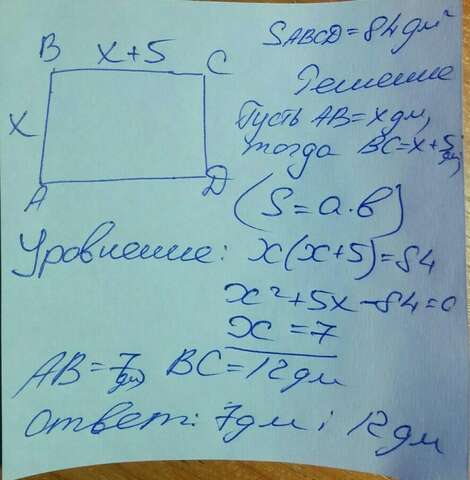 B x+5 C
x
A D
SABCD=84дм²
Решение
Пусть AB=xдм,
тогда BC=x+5дм
(S=a·b)
Уровнение: x(x+5)=84
x²+5x-84=0
x=7
AB=7дм BC=12дм
Ответ: 7дм; 12дм